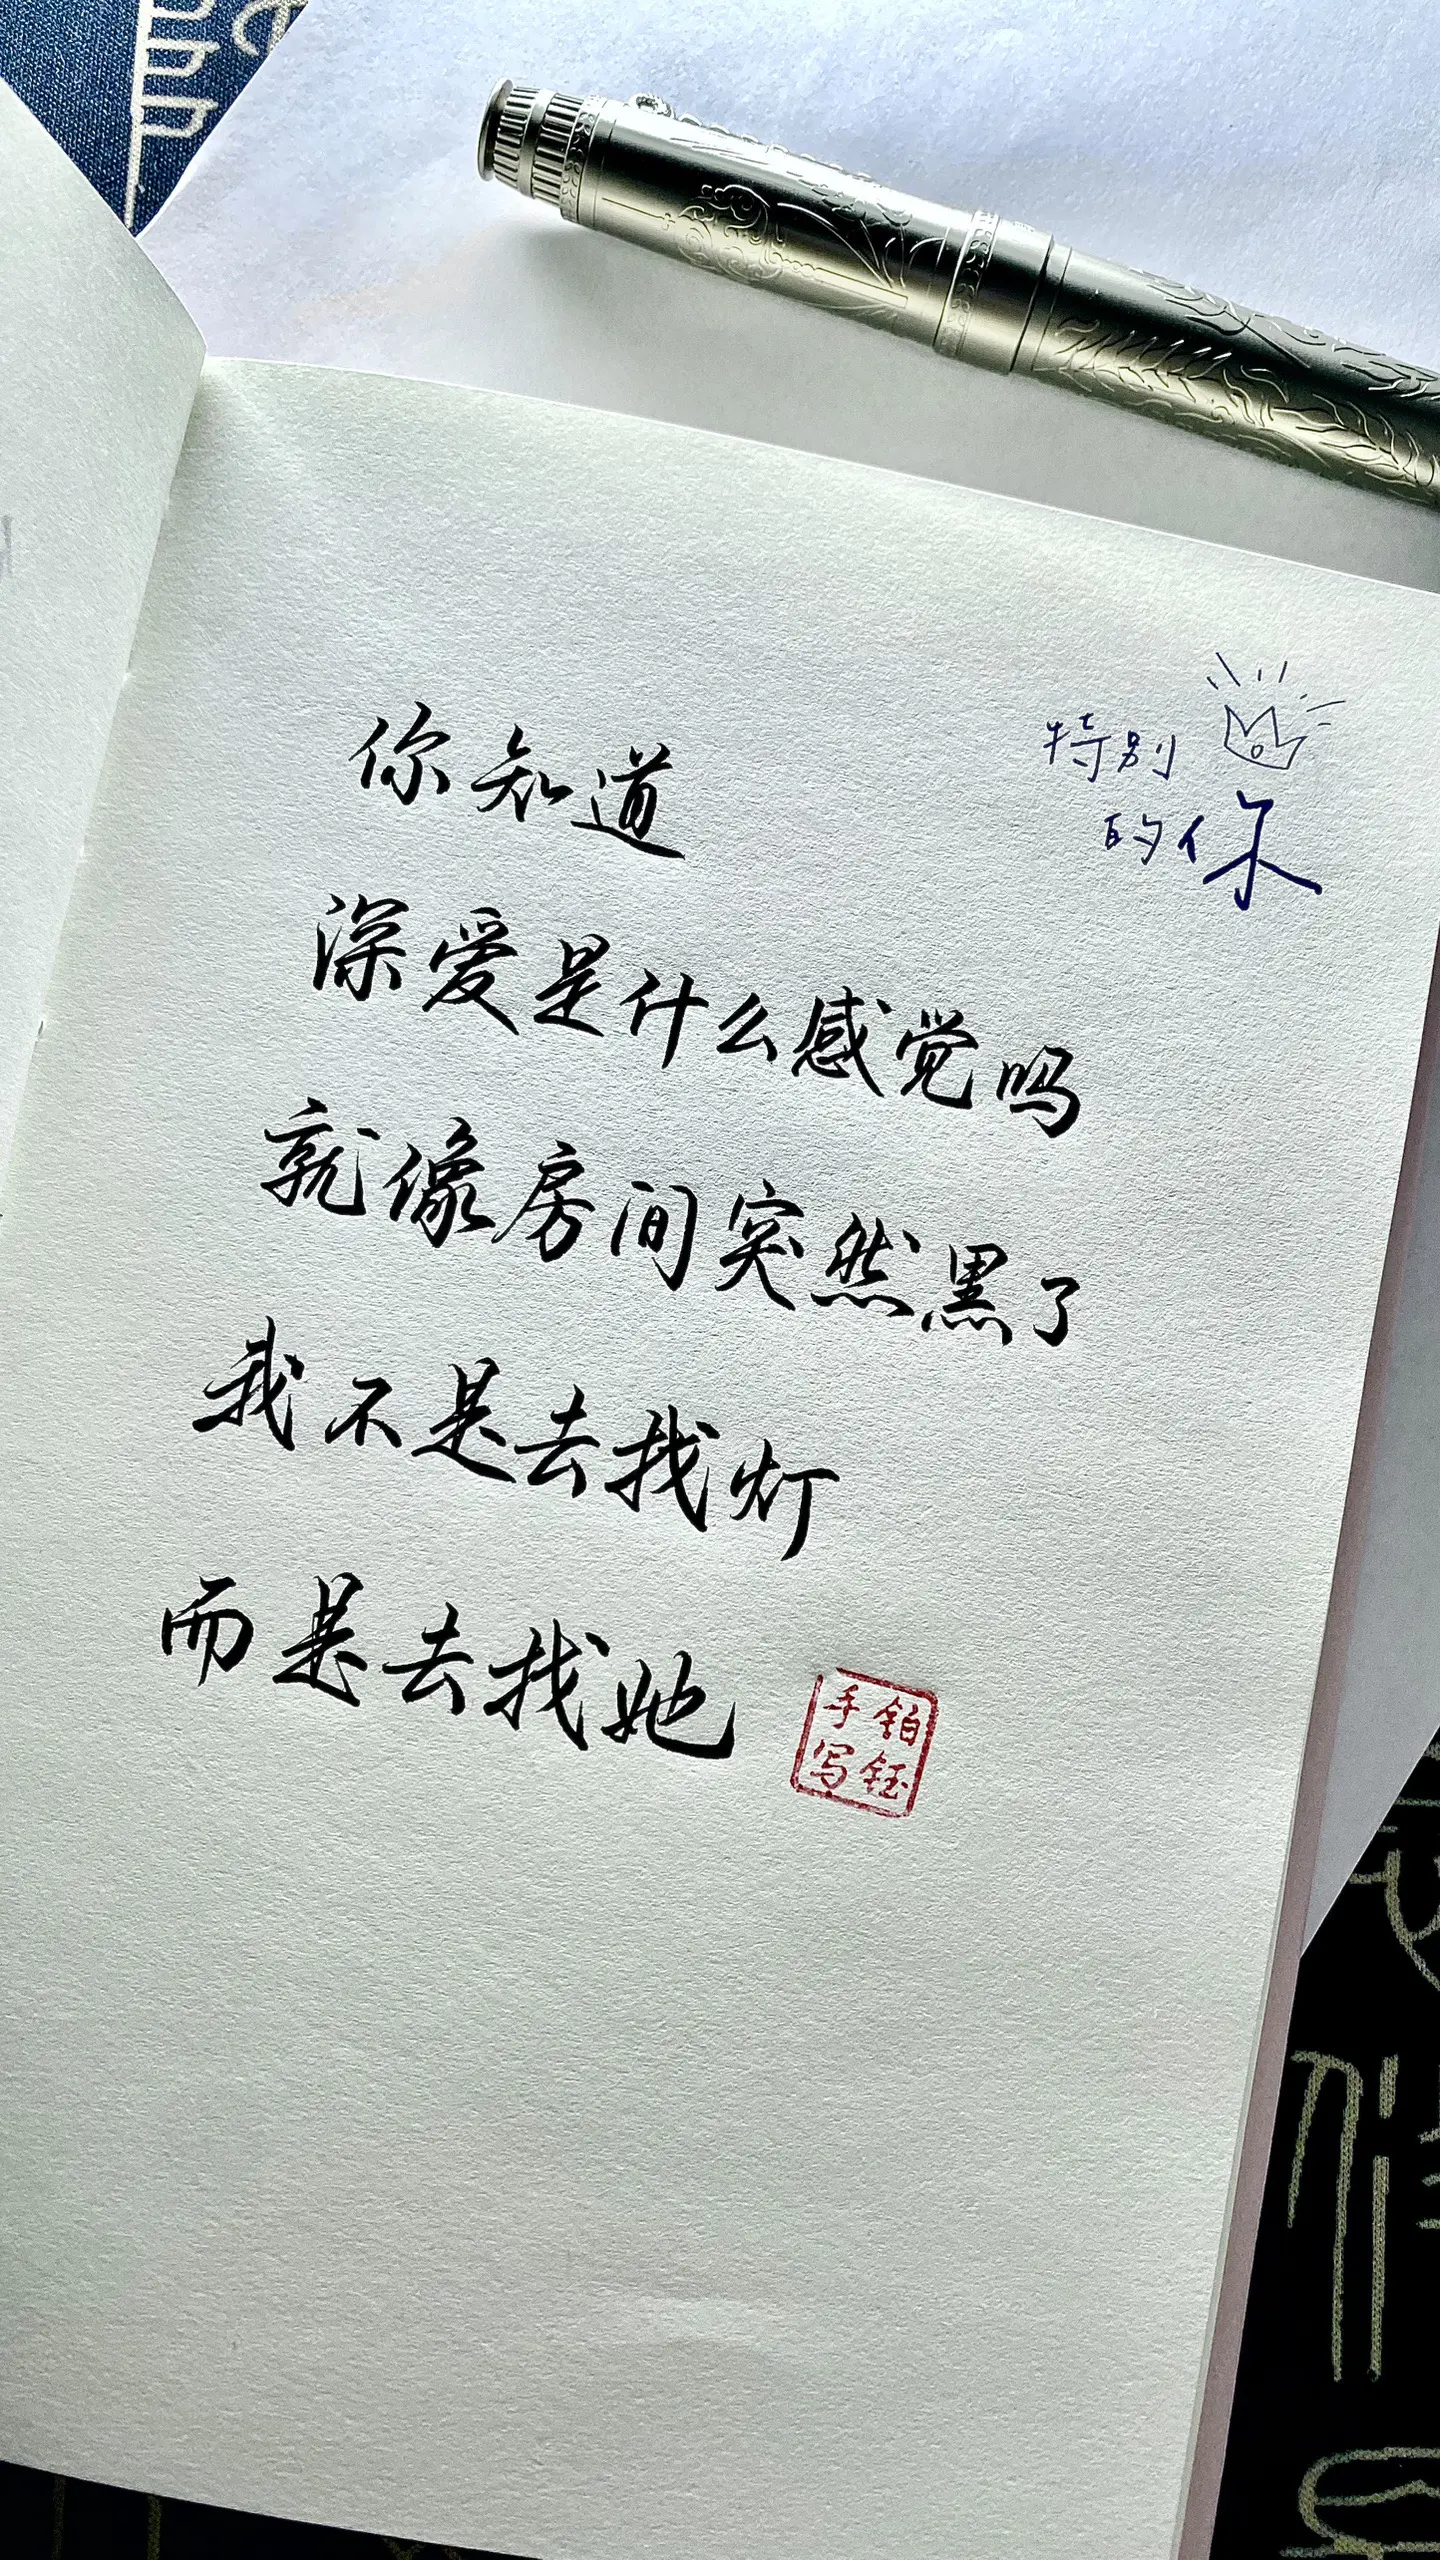 特别
的你
你知道
深爱是什么感觉吗
就像房间突然黑了
我不是去找灯
而是去找她
铂钰
手写